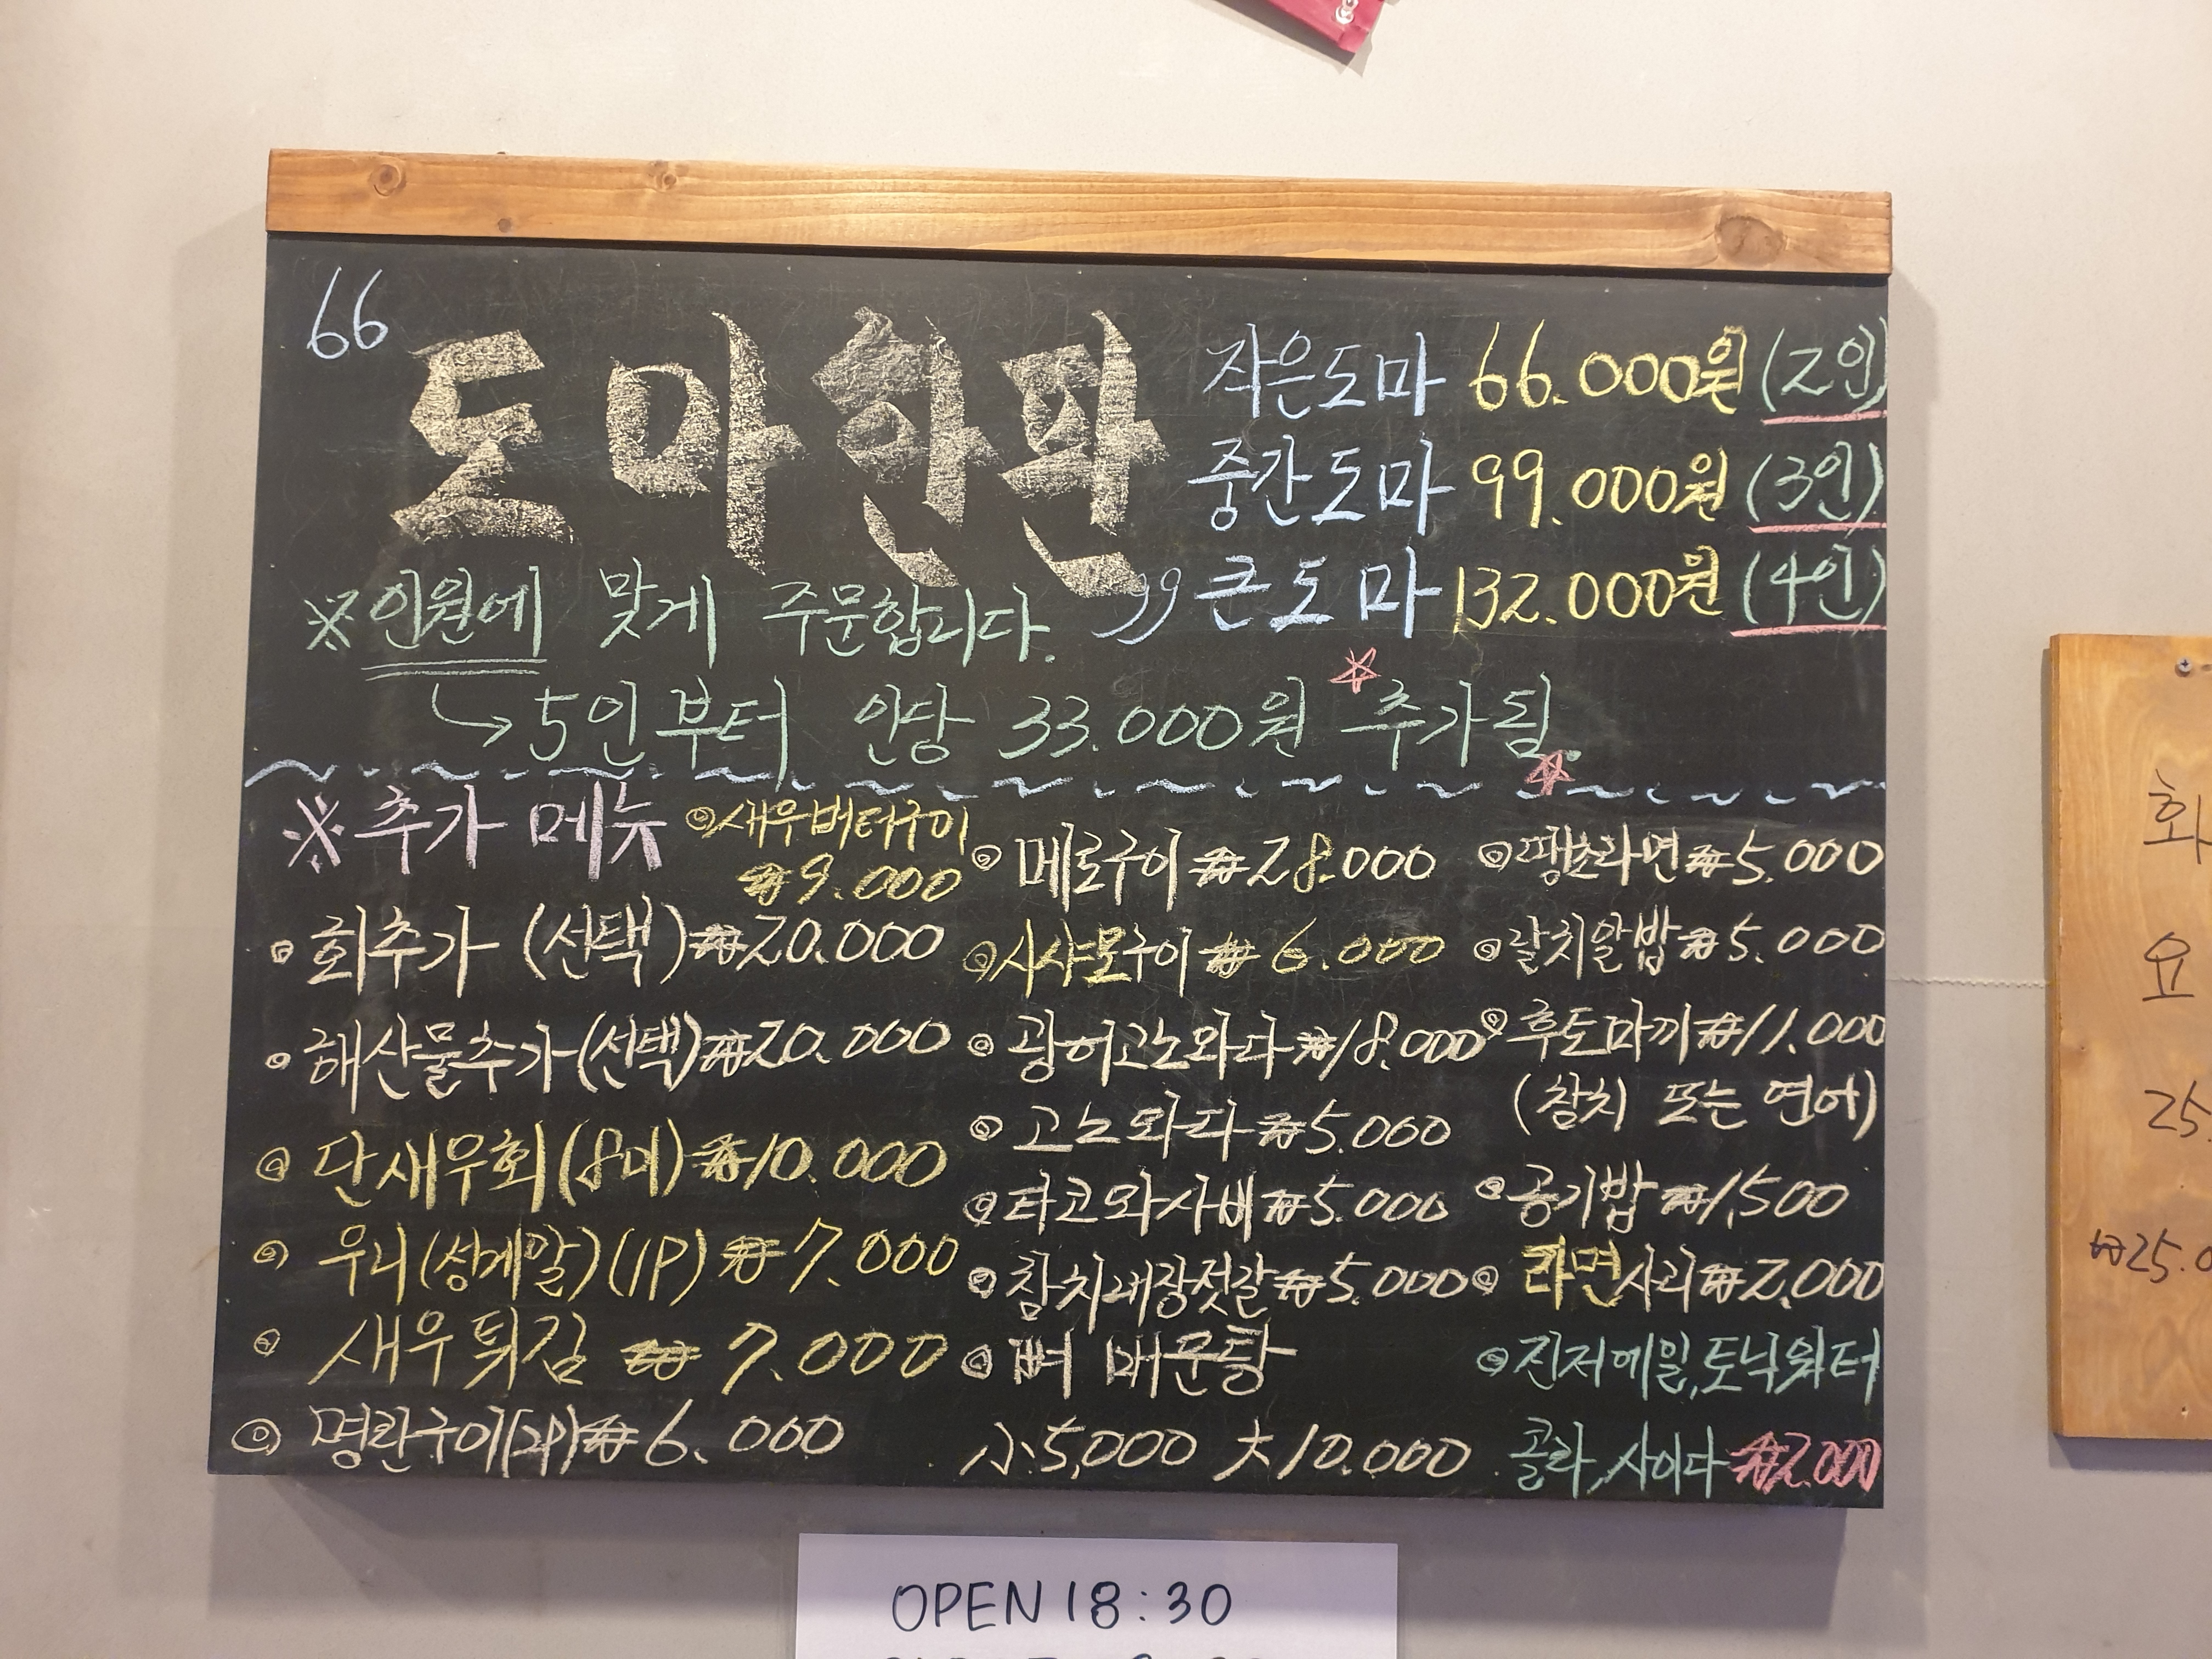 66
도마한판 99
작은도마 66.000원 (2인)
중간도마 99.000원 (3인)
큰도마 132.000원 (4인)
※인원에 맞게 주문합니다.
5인부터 인당 33.000원 추가됨.
※추가 메뉴
◎새우버터구이
₩9.000
회추가 (선택) ₩20.000
해산물추가(선택) ₩20.000
◎ 단새우회(8미) ₩10.000
◎ 우니(성게알)(1P) ₩7.000
◎ 새우튀김 ₩7.000
◎ 명란구이(2P) ₩6.000
◎ 메로구이 ₩28.000
◎시샤모구이 ₩6.000
◎ 광어고노와다 ₩18.000
◎ 고노와다 ₩5.000
◎타코와사비 ₩5.000
◎참치내장젓갈 ₩5.000
◎ 뼈 매운탕
小5,000 大10.000
◎땡초라면 ₩5.000
◎갈치알밥 ₩5.000
◎후토마끼 ₩11.000
(참치 또는 연어)
◎공기밥 ₩1,500
◎ 라면사리 ₩2,000
◎진저에일, 토닉워터
콜라, 사이다 ₩2.000
OPEN 18:30
화
요
25.
₩25.0